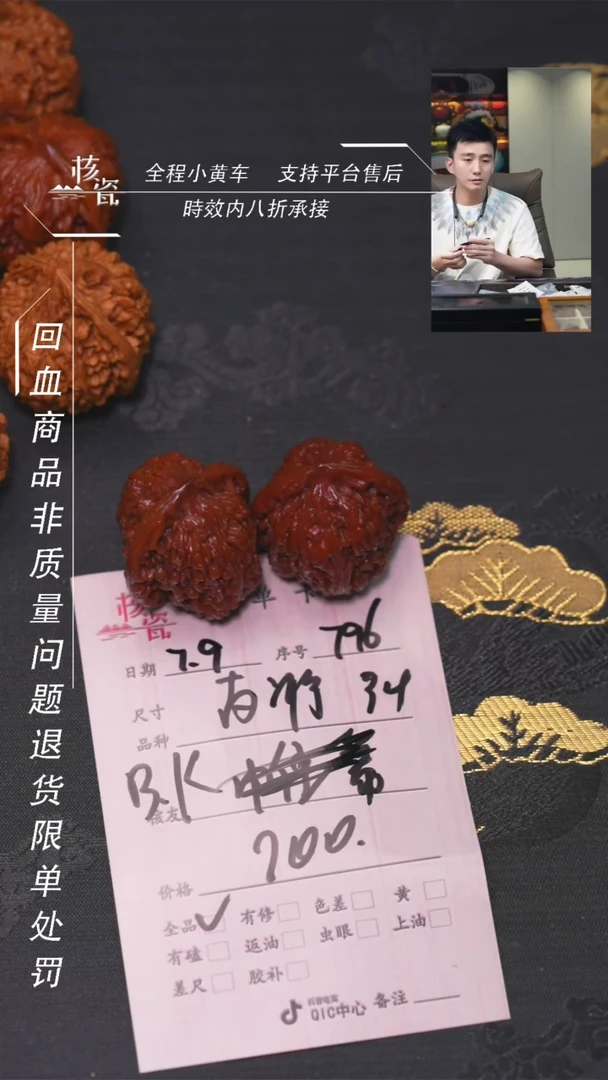 核瓷
全程小黄车 支持平台售后
時效内八折承接
回血商品非质量问题退货限单处罚
核瓷
日期 7.9 序号 796
尺寸 34
品种
B.K
核友
700.
价格
全品✓ 有修 色差 黄
有磕 返油 虫眼 上油
差尺 胶补
抖音电商
QIC中心 备注